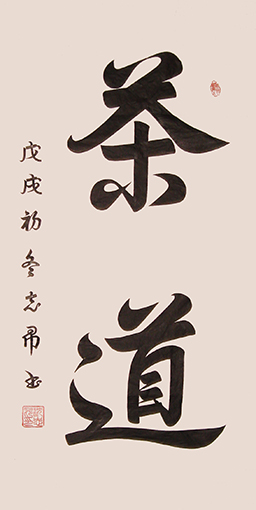 茶道
戊戌初冬志昂书